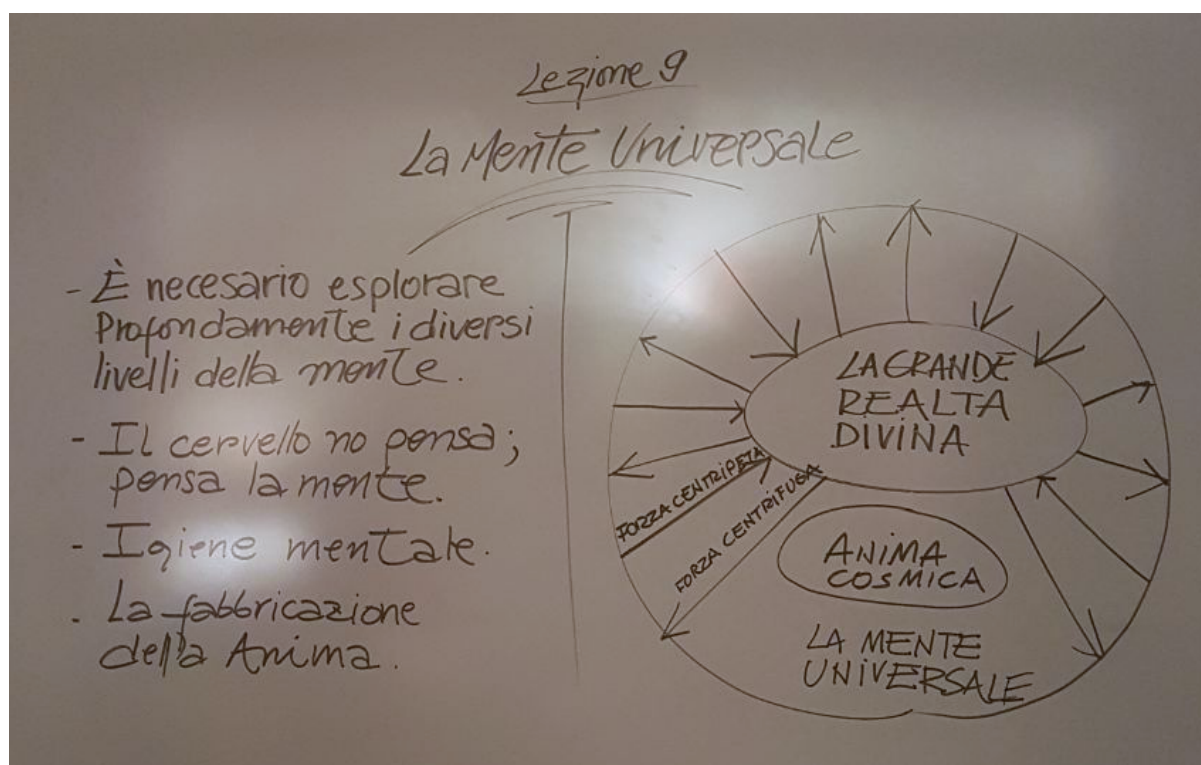 Lezione 9
La Mente Universale
- È necesario esplorare
Profondamente i diversi
livelli della mente.
- Il cervello no pensa;
pensa la mente.
- Igiene mentale.
- La fabbricazione
della Anima.
LA GRANDE
REALTA
DIVINA
FORZA CENTRIPETA
FORZA CENTRIFUGA
ANIMA
COSMICA
LA MENTE
UNIVERSALE